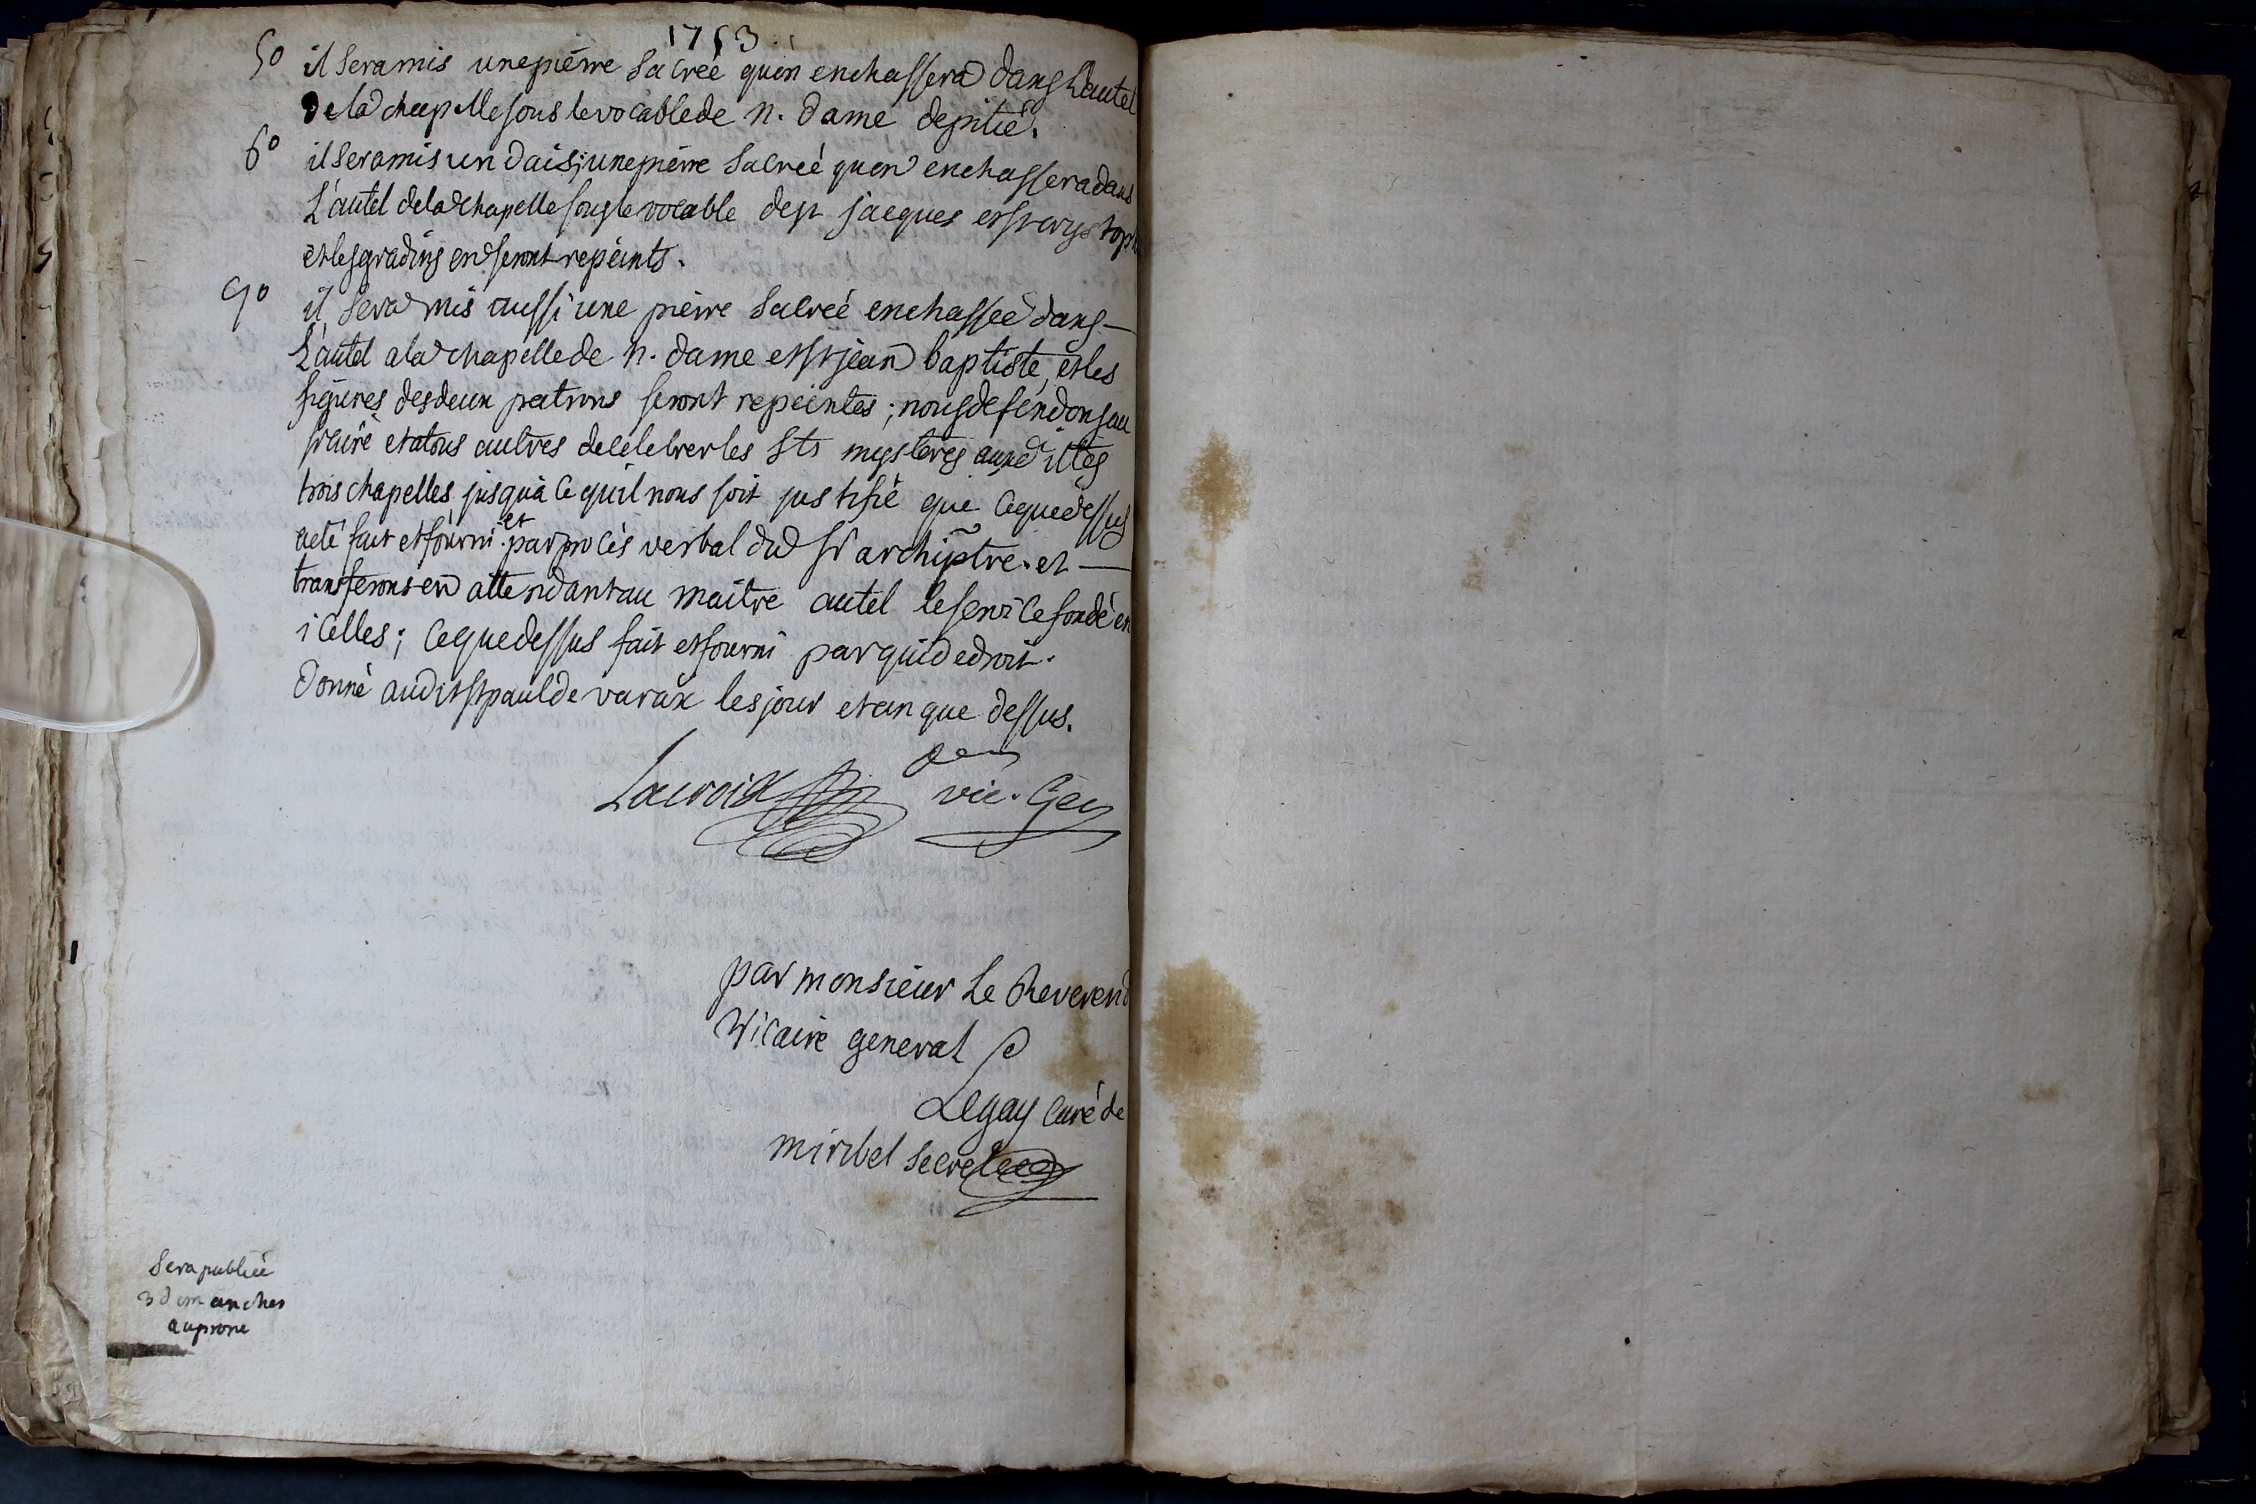 1753
5o il sera mis une piérre Sacrée quon enchassera dans L'autel
de la chapelle sous le vocable de n. dame de pitié.
6o il sera mis un dais, une piérre Sacreé quon enchassera dans
L'autel de la chapelle sous le vocable de st jacques et st
et les gradins en seront repeints.
7o il sera mis aussi une piérre Sacreé enchasseé dans
L'autel a la chapelle de n. dame et st jean baptiste, et les
figures des deux patrons seront repeintes ; nous defendons au
sr curé et a tous autres de celebrer les Sts mysteres auxdittes
trois chapelles jusqu'a ce quil nous soit justifié que ce que dessus
a eté fait et fourni et par procés verbal dud sr archiptre. et
transferons en attendant au maitre autel le service fondé en
icelles ; ce que dessus fait et fourni par qui de droit.
Donné audit st paul de varax les jour et an que dessus.
Lacroix
vic. Gen
par monsieur Le Reverend
Vicaire general
Legay curé de
miribel
Sera publiée
3 dimanches
au prone